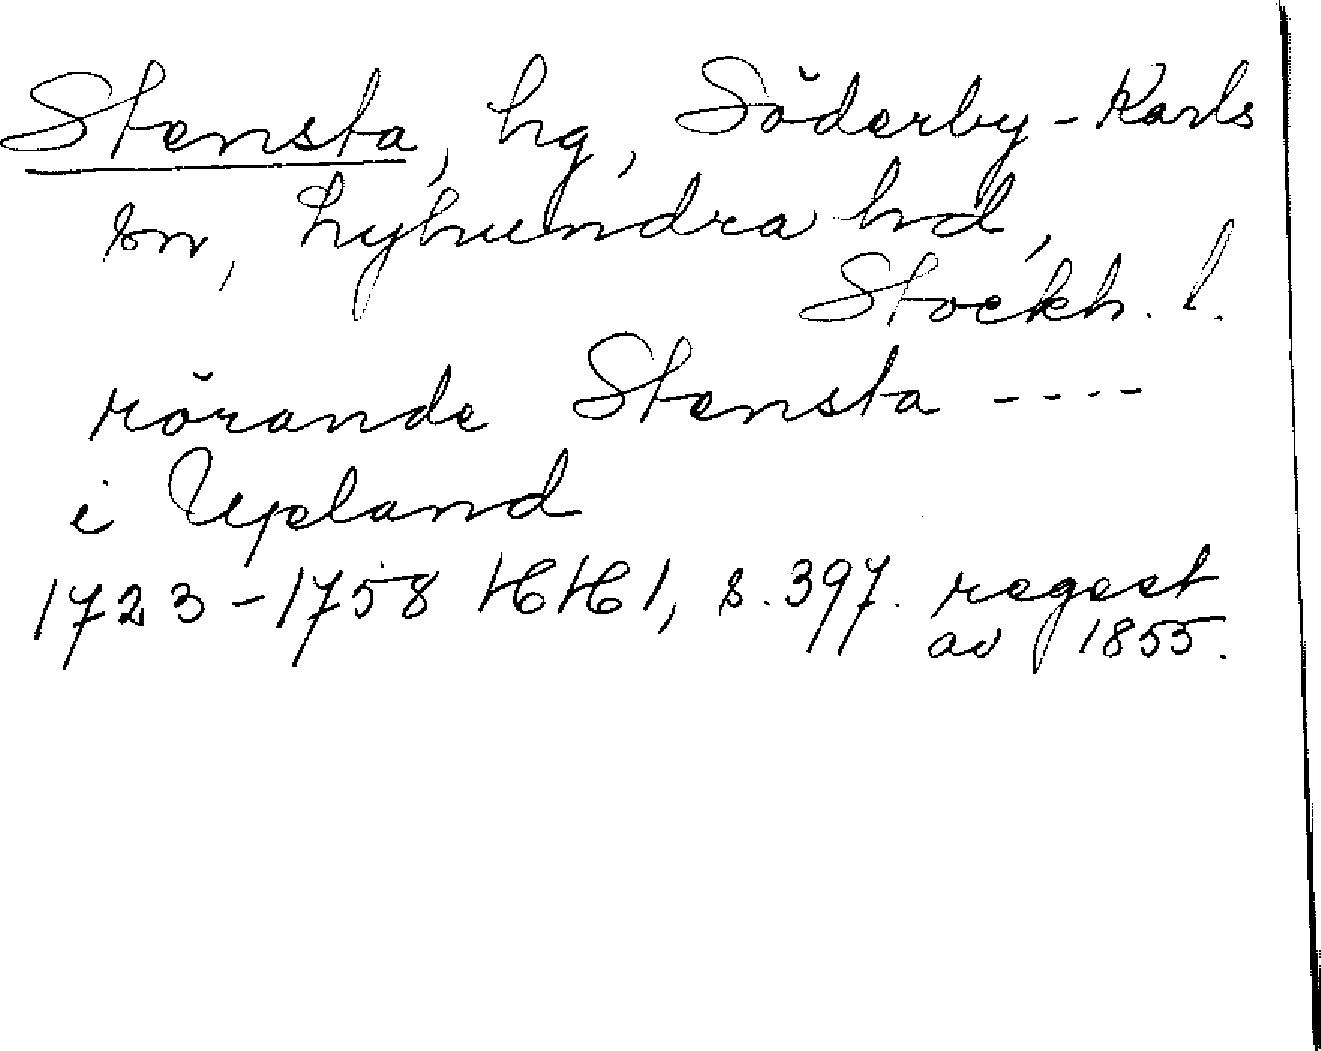 Stensta, hg, Söderby-Karls
sn, Lyhundra hd,
Stockh. l.
rörande Stensta ----
i Upland
1723-1758 HH 1, s. 397. regest
av 1855.